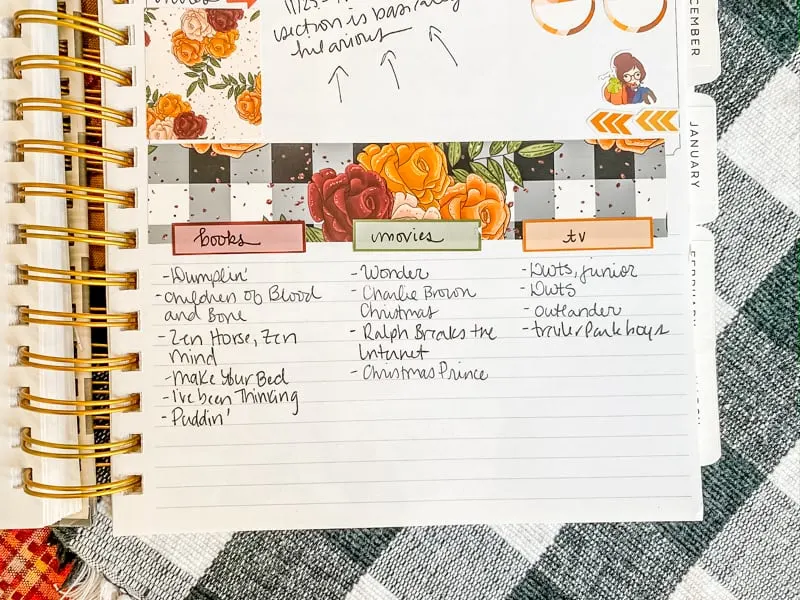 11/25-
section is basically
hilarious
books
- Dumplin'
- Children of Blood
and Bone
- Zen Horse, Zen
mind
- Make Your Bed
- I've been Thinking
- Puddin'
movies
- Wonder
- Charlie Brown
Christmas
- Ralph Breaks the
Internet
- Christmas Prince
tv
- Dwts, junior
- Dwts
- outlander
- trailer Park boys
CEMBER
JANUARY
FEBRUARY